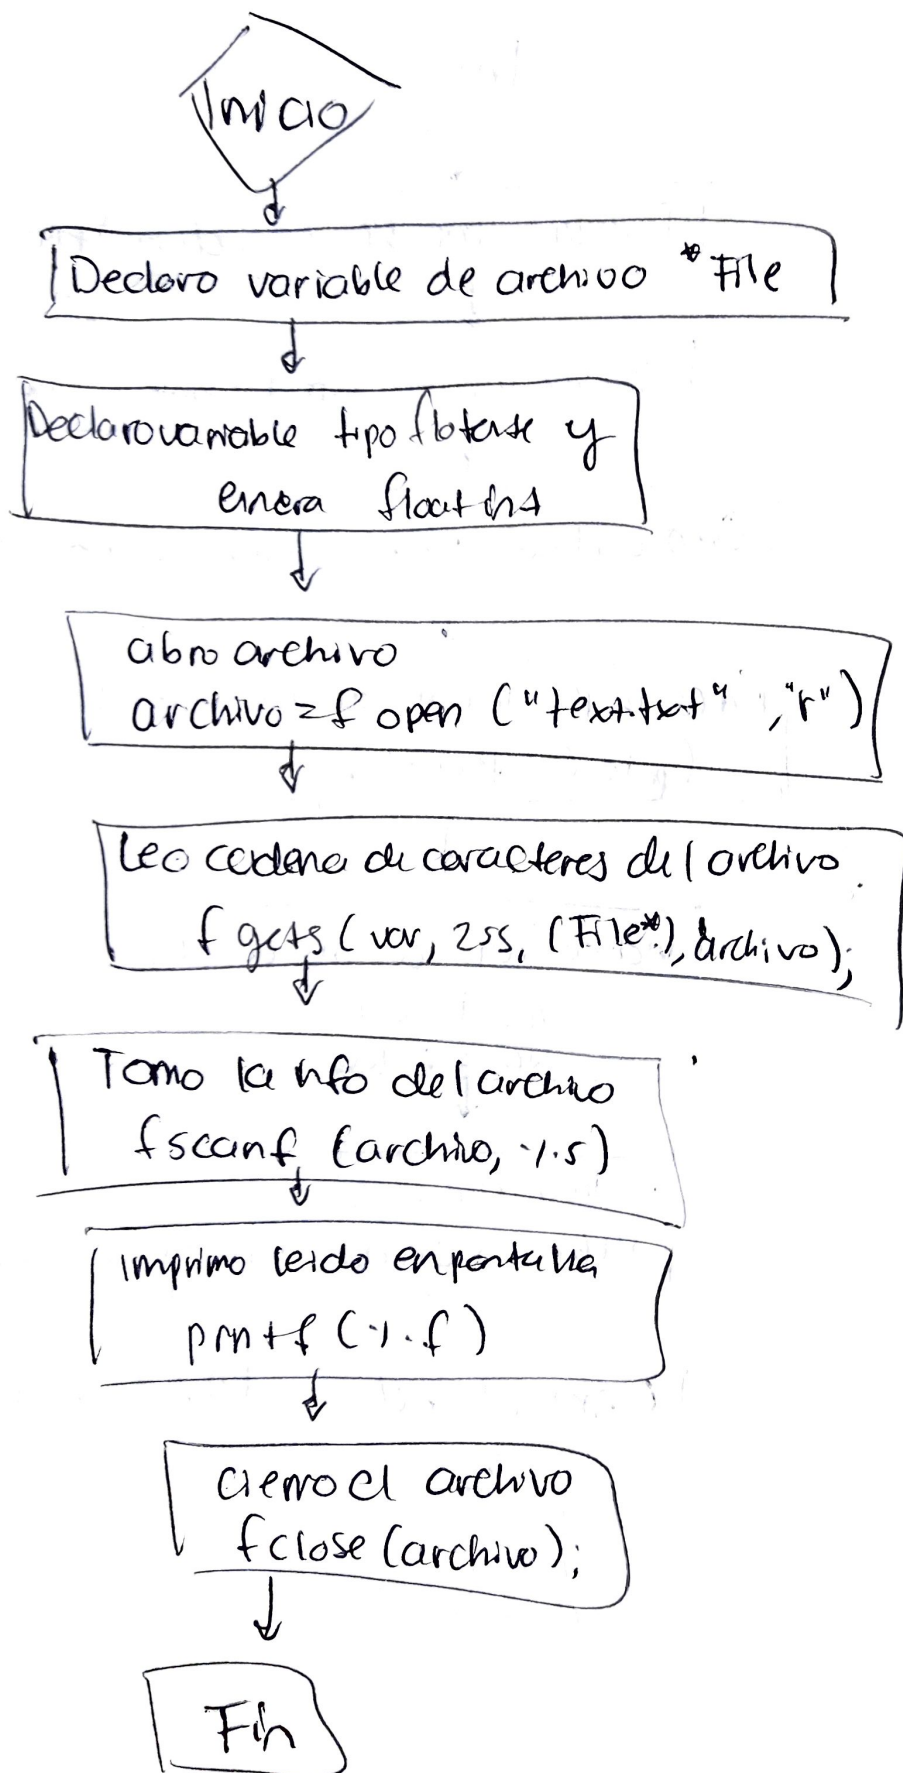 Inicio
Declaro variable de archivo *File
Declaro variable tipo flotante y
entera float int
abro archivo
archivo = fopen ("text.txt", "r")
Leo cadena de caracteres del archivo.
fgets (var, 255, (File*), archivo);
Tomo la info del archivo
fscanf (archivo, %s)
Imprimo leido en pantalla
printf (%f)
cierro el archivo
fclose (archivo);
Fin